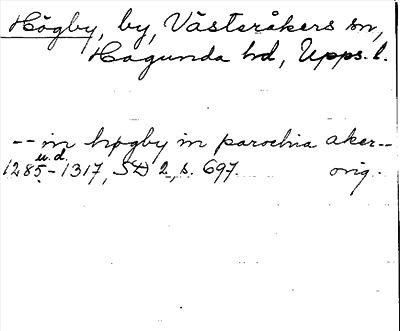 Högby, by, Västeråkers sn,
Hagunda hd, Upps. l.
-- in høgby in parochia aker--
u.d.
1285-1317, SD 2, s. 697. orig.